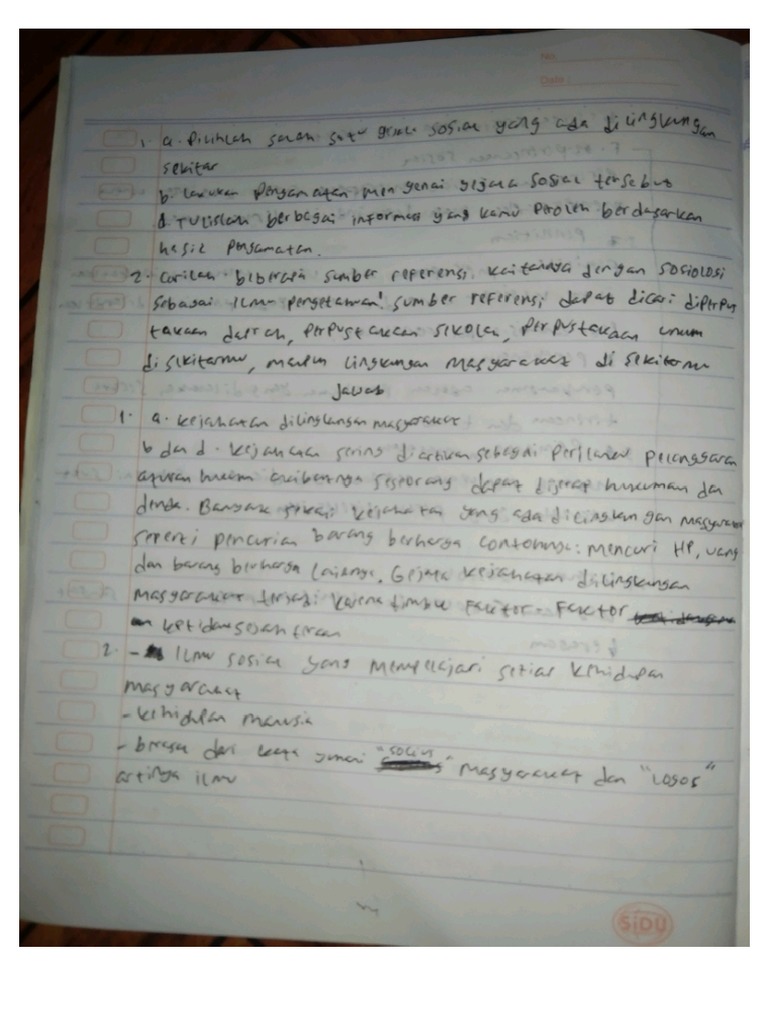 No:
Date:
1. a. Pilihlah salah satu gejala sosial yang ada di lingkungan
sekitar
b. Lakukan pengamatan mengenai gejala sosial tersebut
d. Tulislah berbagai informasi yang kamu peroleh berdasarkan
hasil pengamatan.
2. Carilah beberapa sumber referensi kaitannya dengan sosiologi
sebagai ilmu pengetahuan! sumber referensi dapat dicari diperpus
takaan daerah, perpustakaan sekolah, perpustakaan umum
di sekitarmu, maupun lingkungan masyarakat di sekitarmu
Jawab
1. a. kejahatan dilingkungan masyarakat
b dan d. kejahatan sering diartikan sebagai perilaku pelanggaran
aturan hukum akibatnya seseorang dapat dijerat hukuman dan
denda. Banyak sekali kejahatan yang ada dilingkungan masyarakat
seperti pencurian barang berharga contohnya: mencuri HP, uang
dan barang berharga lainya. Gejala kejahatan dilingkungan
masyarakat terjadi karena timbul Faktor-Faktor
ketidaksejahteraan
2. - Ilmu sosial yang mempelajari setiap kehidupan
masyarakat
- kehidupan manusia
- berasal dari kata yunani "socius" masyarakat dan "Logos"
artinya ilmu
SiDU